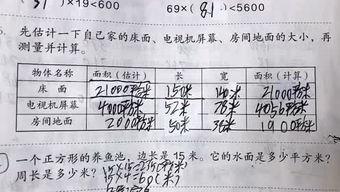 )×19<600 69×( 81 )<5600
先估计一下自己家的床面、电视机屏幕、房间地面的大小，再
测量并计算。
物体名称 面积（估计） 长 宽 面积（计算）
床 面 21000平方米 150米 140米 21000平方米
电视机屏幕 4000平方米 52米 78米 4056平方米
房间地面 2000平方米 50米 38米 1900平方米
一个正方形的养鱼池，边长是 15 米。它的水面是多少平方米？
周长是多少米？
15×4=60(米)